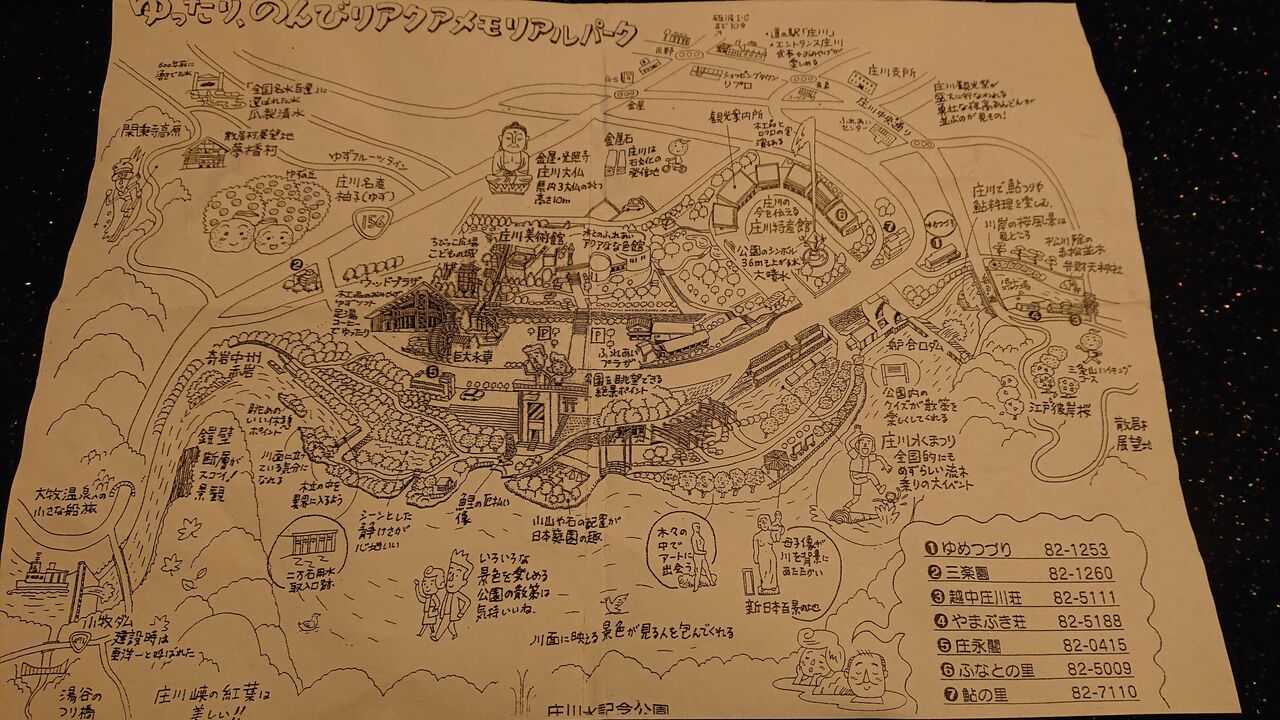 ゆったり、のんびりアクアメモリアルパーク
砺波I・C
まで10分
・道の駅「庄川」
・エントランス庄川
食事やおみやげが
楽しめる
ショッピングタウン
リプロ
金屋
庄川支所
庄川観光祭が
盛大に行なわれる
庄川中央通り
ふれあい
センター
「全国名水百選」に
選ばれた水
瓜裂清水
閑乗寺高原
散居村展望地
夢木香村
ゆずフルーツライン
ゆずの丘
庄川名産
柚子(ゆず)
156
金屋・光照寺
庄川大仏
県内3大仏のひとつ
高さ10m
金屋石
庄川は
石文化の
発信地
観光案内所
木工品と
ロクロの実
演もある
庄川の
今を伝える
庄川特産館
公園のシンボル
36m上がる水
大噴水
ゆめつづり
庄川で鮎つりや
鮎料理を楽しむ。
川岸の桜風景は
見どころ
松川除の
赤松並木
弁財天神社
ちびっこ広場
こどもの城
庄川美術館
水とのふれあい
アクアなな色館
ウッドプラザ
巨大水車
P
P
ふれあい
プラザ
公園を眺望できる
絶景ポイント
舟戸口ダム
三条山ハイキング
コース
江戸彼岸桜
散居村
展望地
公園内の
クイズが散策を
楽しくしてくれる
庄川水まつり
全国的にも
めずらしい流木
乗りの大イベント
奇岩中州
赤岩
眺めの
いい休憩
ポイント
鎧壁
断層が
スゴイ!
景観
川面に立っ
ている気分に
なれる
木立の中を
異界に入るよう
シーンとした
静けさが
心地いい
鯉の厄払い
像
川山や石の配置が
日本庭園の趣
二万石用水
取入口跡
いろいろな
景色を楽しめる
公園の散策は
気持いいね。
木々の
中で
アートに
出会う
母子像が
川を背景に
あたたかい
新日本百景の地
川面に映える景色が見る人を包んでくれる
大牧温泉への
小さな船旅
小牧ダム
建設時は
東洋一と呼ばれた
471
湯谷の
つり橋
庄川峡の紅葉は
美しい!!
庄川水記念公園
❶ ゆめつづり 82-1253
❷ 三楽園 82-1260
❸ 越中庄川荘 82-5111
❹ やまぶき荘 82-5188
❺ 庄永閣 82-0415
❻ ふなとの里 82-5009
❼ 鮎の里 82-7110